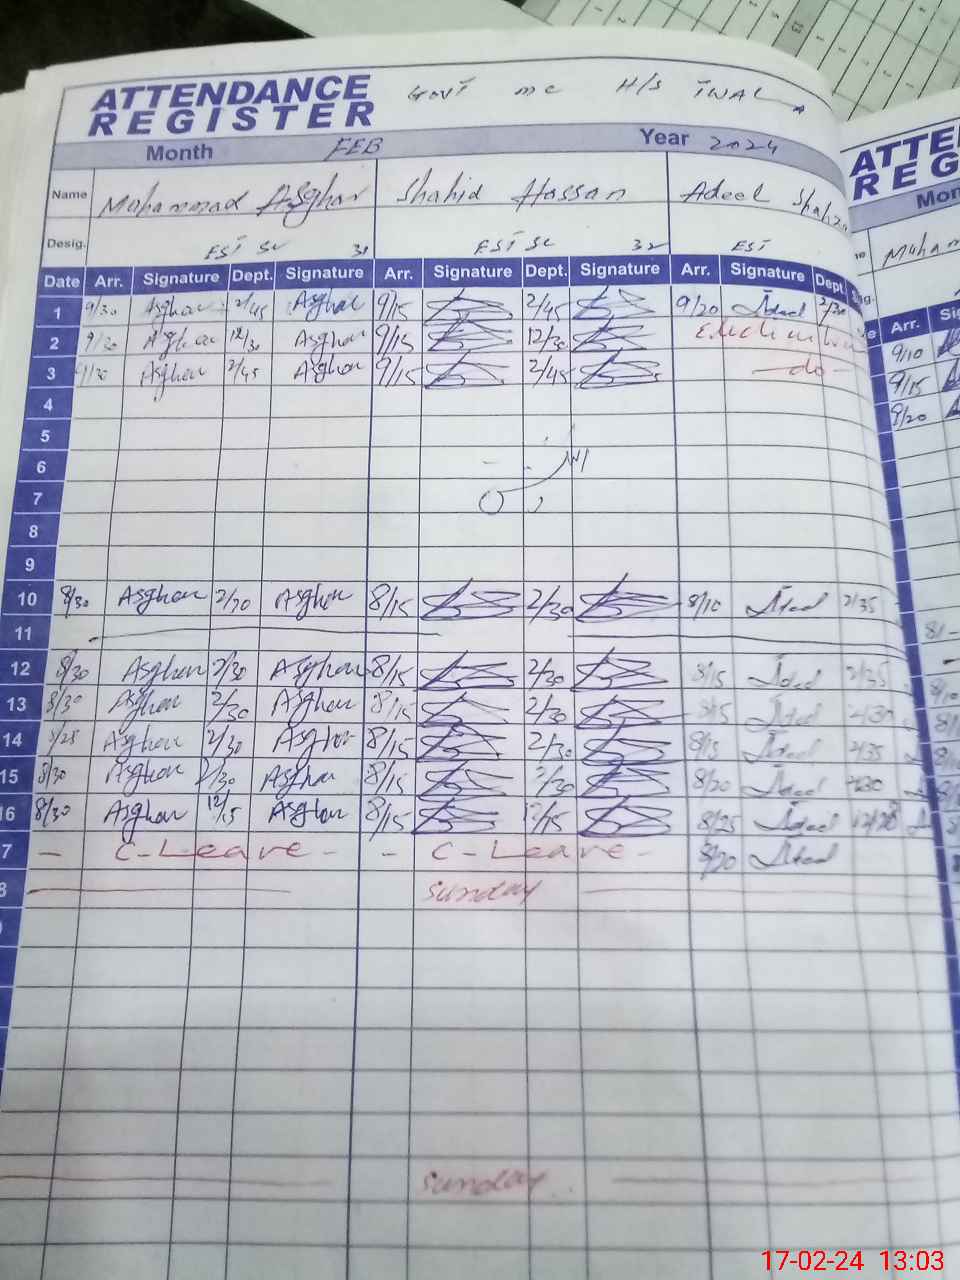 ATTENDANCE
REGISTER
GOVT MC H/S
Month FEB Year 2024
Name Mohammad Asghar Shahid Hassan Adeel
Desig. EST Sc 31 EST Sc 32 EST
Date Arr. Signature Dept. Signature Arr. Signature Dept. Signature Arr. Signature Dept.
1 9/30 Asghar 2/45 Asghar 9/15 2/45 9/20 Adeel 2/30
2 9/30 Asghar 12/30 Asghar 9/15 12/30
3 9/30 Asghar 2/45 Asghar 9/15 2/45 —do—
4
5
6
7
8
9
10 8/30 Asghar 2/20 Asghar 8/15 2/30 8/10 Adeel 2/35
11
12 8/30 Asghar 2/30 Asghar 8/15 2/30 8/15 Adeel 2/35
13 8/30 Asghar 2/30 Asghar 8/15 2/30 8/15 Adeel 2/30
14 8/25 Asghar 2/30 Asghar 8/15 2/30 8/15 Adeel 2/35
15 8/30 Asghar 2/30 Asghar 8/15 2/30 8/20 Adeel 2/30
16 8/30 Asghar 12/15 Asghar 8/15 12/15 8/25 Adeel 12/20
7 - C-Leave - - C-Leave - 8/20 Adeel
8 Sunday
Sunday
ATTE
REG
Mon
Arr. Sig
9/10
9/15
9/20
17-02-24 13:03